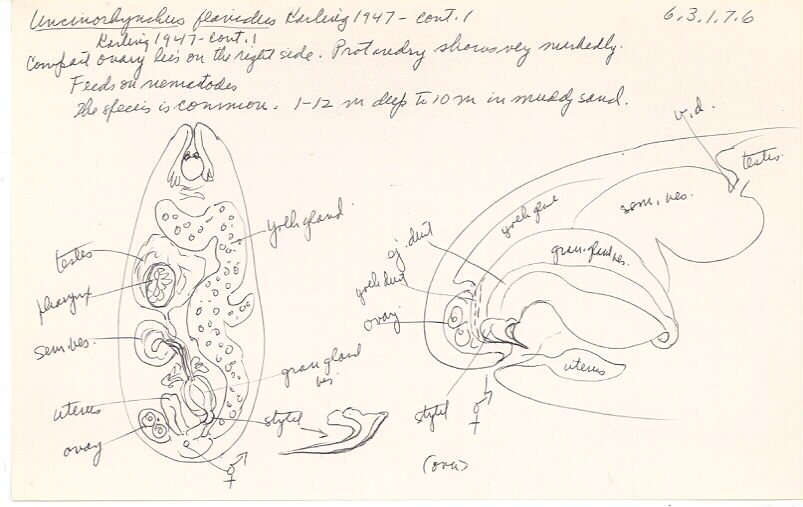 Uncinorhynchus flavidus Karling 1947 - cont. 1
6.3.1.7.6
Karling 1947 - cont. 1
Compact ovary lies on the right side. Protandry shows very markedly.
Feeds on nematodes
The species is common. 1-12 m deep to 10 m in muddy sand.
v.d.
testes
sem. ves.
yolk gland
gran. gland ves.
ej. duct
yolk duct
ovary
uterus
stylet
♂
♀
(over)
yolk gland
testes
pharynx
sem. ves.
gran gland
ves.
uterus
stylet
ovary
♂
♀